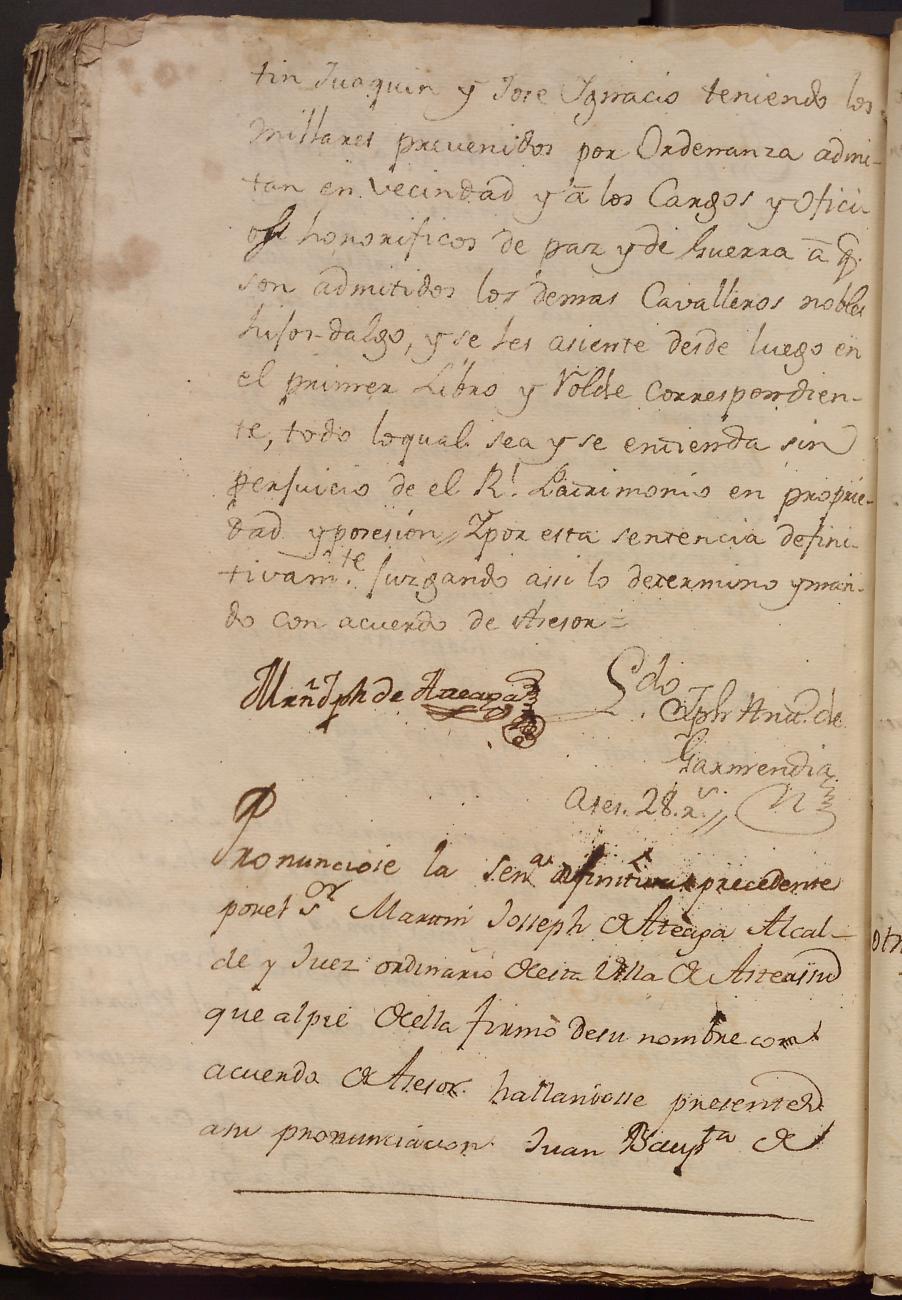 tin Juaquin y Jose Ygnacio teniendo los
millares prevenidos por Ordenanza admi-
tan en vecindad y â los Cargos y ofici
os honorificos de paz y de Guerra â q.
son admitidos los demas Cavalleros nobles
hijos-dalgo, y se les asiente desde luego en
el primer Libro y Rolde correspondien-
te, todo loqual sea y se entienda sin
perjuicio de el R.l Patrimonio en proprie-
dad y posesion // Y por esta sentencia defini-
tivam.te juzgando assi lo determino y man-
do con acuerdo de Asesor =
Mrn Jph de Ateaga
L.do Jph Ant. de
Garmendia
Ases. 28. r.s //
Pronunciose la sen.a definitiva precedente
porel s.or Martin Josseph de Ateaga Alcal-
de y Juez ordinario deesta Villa de Asteassu
que alpie deella firmò desu nombre con
acuerdo de Asesor hallandosse presente
asu pronunciacion Juan Baup.ta de
otr